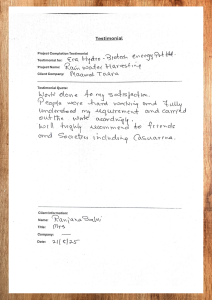 Testimonial
Project Completion Testimonial
Testimonial for: Era Hydro-Biotech energy Pvt ltd.
Project Name: Rain water Harvesting
Client Company:
Testimonial Quote:
Work done to my satisfaction.
People were hard working and fully
understood my requirement and carried
out the work accordingly.
Will highly recommend to friends
and Societies including Casuarina.
Client Information:
Name:
Title: Mrs
Company: —
Date: 21/5/25